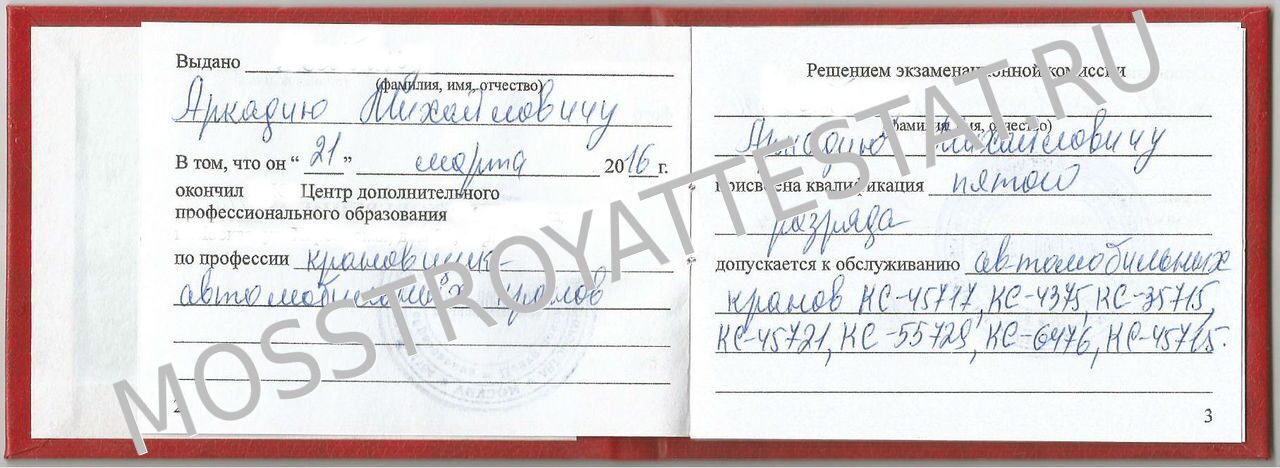 Выдано
(фамилия, имя, отчество)
Аркадию Михайловичу
В том, что он “ 21 ” марта 2016 г.
окончил Центр дополнительного
профессионального образования
по профессии крановщик
автомобильных кранов
2
Решением экзаменационной комиссии
(фамилия, имя, отчество)
Аркадию Михайловичу
присвоена квалификация пятого
разряда
допускается к обслуживанию автомобильных
кранов КС-45717, КС-4375, КС-35715,
КС-45721, КС-55729, КС-6476, КС-45715.
3
MOSSTROYATTESTAT.RU